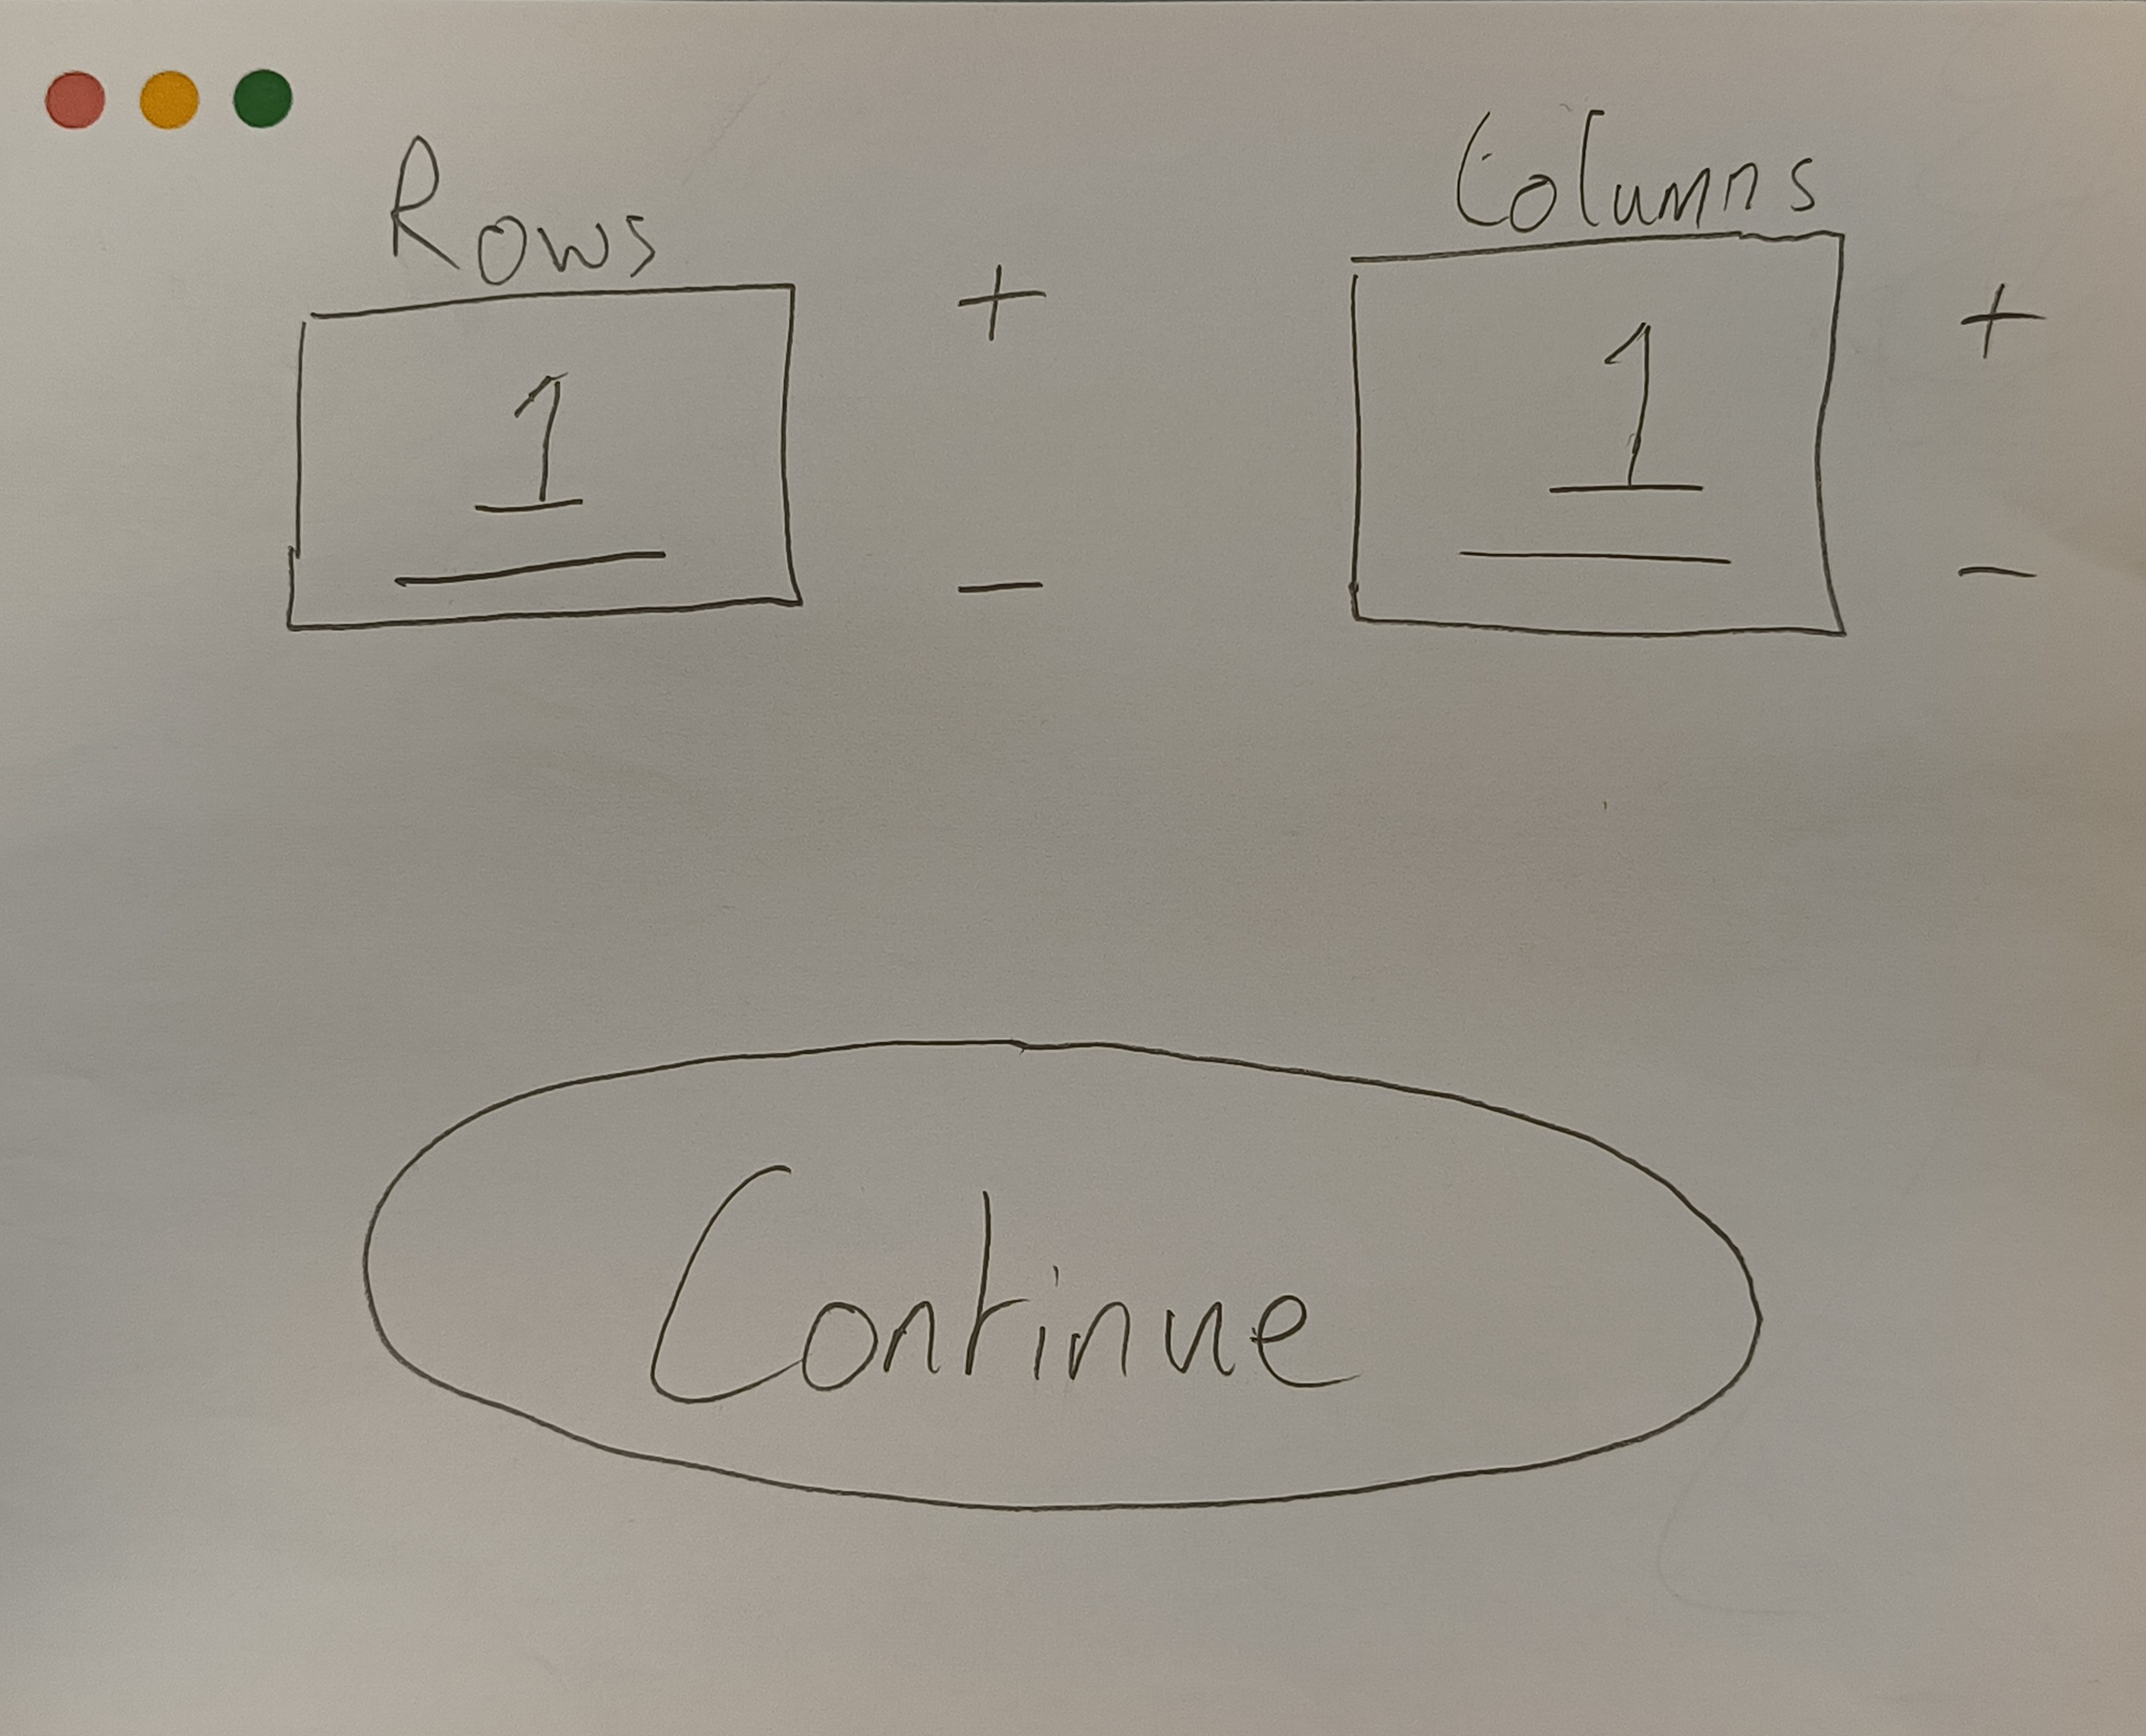 Rows
Columns
1
+
1
+
-
-
Continue